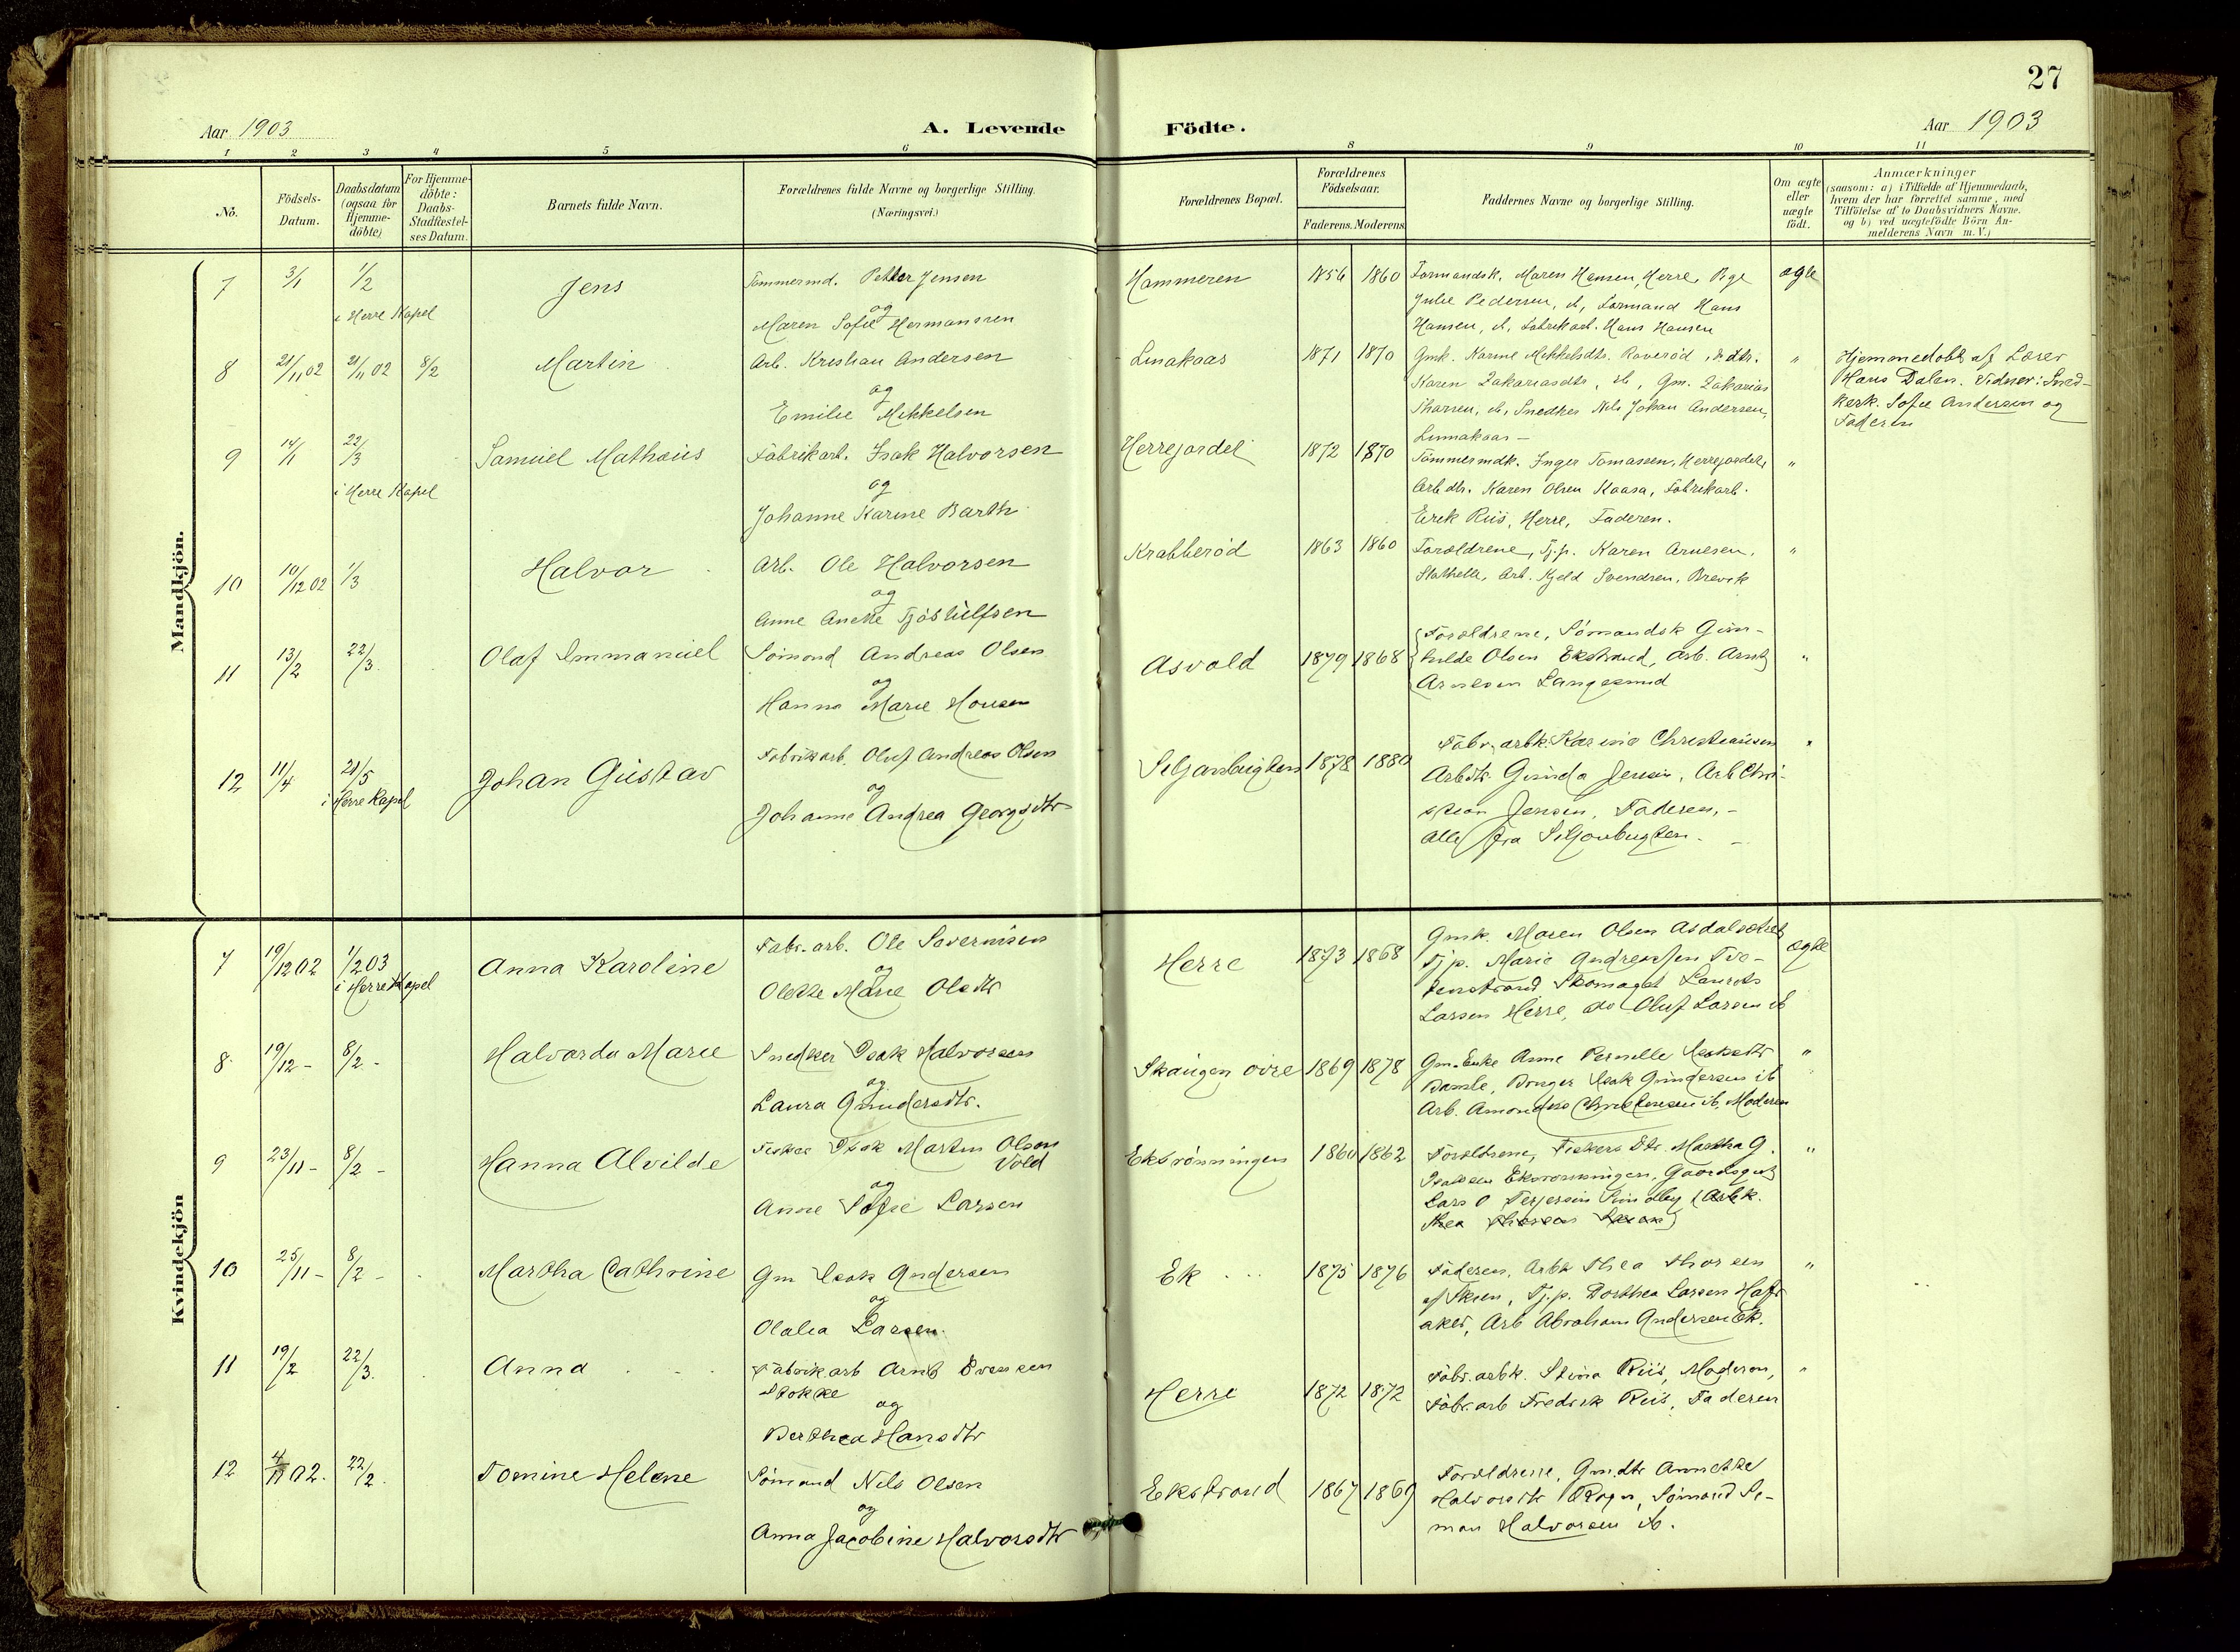 27
Aar 1903
A. Levende Födte.
Aar 1903
1 2 3 4 5 6 8 9 10 11
No.
Födsels-
Datum.
Daabsdatum
(ogsaa for
Hjemme-
döbte)
For Hjemme-
döbte:
Daabs-
Stadfæstel-
ses Datum.
Barnets fulde Navn.
Forældrenes fulde Navne og borgerlige Stilling.
(Næringsvei.)
Forældrenes Bopæl.
Forældrenes
Födselsaar.
Faderens. Moderens.
Faddernes Navne og borgerlige Stilling.
Om ægte
eller
uægte
födt.
Anmærkninger
(saasom: a) i Tilfælde af Hjemmedaab,
hvem der har forrettet samme, med
Tilföielse af to Daabsvidners Navne.
og b) ved uægtefödte Börn An-
melderens Navn m. V.)
Mandkjön.
7 3/1 1/2
i Herre Kapel
Jens
Tømmermd. Petter Jensen
og
Maren Sofie Hermansen
Hammeren 1856 1860
Formandsk. Maren Hansen, Herre, Pige
Julie Pedersen, ib, Formand Hans
Hansen, ib, Fabrikarb. Hans Hansen
ægte
8 21/11 02 21/11 02 8/2
Martin
Arb. Kristian Andersen
og
Emilie Mikkelsen
Linakaas 1871 1870
Gmk. Karine Mikkelsdtr. Roverød,
Karen Zakariasdtr, ib, Gm. Zakarias
ib, Snedker Nils Johan Andersen,
Linnakaas –
"
Hjemmedøbt af Lærer
Hans Dalen. Vidner: Sned-
kerk. Sofie Andersen og
Faderen
9 14/1 22/3
i Herre Kapel
Samuel Mathæus
Fabrikarb. Isak Halvorsen
og
Johanne Karine Barth
Herregardet 1872 1870
Tømmermdk. Inger Tomassen, Herregardet,
Arb.dtr. Karen Olsen Kaasa, Fabrikarb.
Erik Riis, Herre, Faderen.
"
10 10/12 02 1/3
Halvor
Arb. Ole Halvorsen
og
Anne Anette Tjøstulfsen
Krabberød 1863 1860
Forældrene, Tj.p. Karen Arnesen,
Stathelle, Arb. Kjeld Svendsen, Brevik
"
11 13/2 22/3.
Olaf Immanuel
Sømand Andreas Olsen
og
Hanna Marie Hansen
Asvold 1879 1868
Forældrene, Sømandsk Gun-
hilde Olsen Ekstrand, Arb. Arnt
Arnesen Langesund
"
12 11/4 21/5
i Herre Kapel
Johan Gustav
Fabrikarb. Oluf Andreas Olsen
og
Johanne Andrea Georgsdtr
Siljanbugten 1878 1880
Fabr.arbk. Karine Christiansen
Arbdtr. Gunda Jensen, Arb Chri-
stian Jensen, Faderen, –
alle fra Siljanbugten. –
"
Kvindekjön
7 19/12 02 1/2 03
i Herre Kapel
Anna Karoline
Fabr.arb. Ole Severinsen
og
Olette Marie Olsdtr
Herre 1873 1868
Gmk. Maren Olsen Asdalsætret
Tj.p. Marie Andreassen Tve-
tenstrand Skomager Laurets
Larsen Herre, do Oluf Larsen ib
ægte
8. 19/12 – 8/2 –
Halvarda Marie
Snedker Isak Halvorsen
og
Laura Gundersdtr.
Skaugen øvre 1869 1878
Gm.Enke Anne Pernille Isaksdtr
Bamle, Bruger Isak Gundersen ib
Arb. Amandus Christensen ib, Moderen
"
9 23/11 – 8/2 –
Hanna Alvilde
Fisker Isak Martin Olsen
Vold
og
Anne Sofie Larsen
Eksrønningen 1860 1862
Forældrene, Fiskers Dtr. Martha G.
Isaksen Eksrønningen, Gaardsgut
Lars O Terjesen Rindby (Arbk.
Thea Thorsen Skien)
"
10 25/11 – 8/2 –
Martha Cathrine
Gm Isak Andersen
og
Olalia Larsen.
Ek 1875 1876
Faderen, Arbk Thea Thorsen
af Skien, Tj.p. Dorthea Larsen Hafs-
aker, Arb Abraham Andersen Ek.
"
11 19/2 22/3.
Anna
Fabrikarb Arnt Evensen
Stokke
og
Berthea Hansdtr
Herre 1872 1872
Fabr.arbk. Stina Riis, Moderen,
Fabr.arb Fredrik Riis, Faderen
"
12 4/11 02. 22/2.
Tomine Helene
Sømand Nils Olsen
og
Anna Jacobine Halvorsdtr
Ekstrand 1867 1869
Forældrene, Gm.dtr Annette
Halvorsdtr Sømand Si-
mon Halvorsen ib.